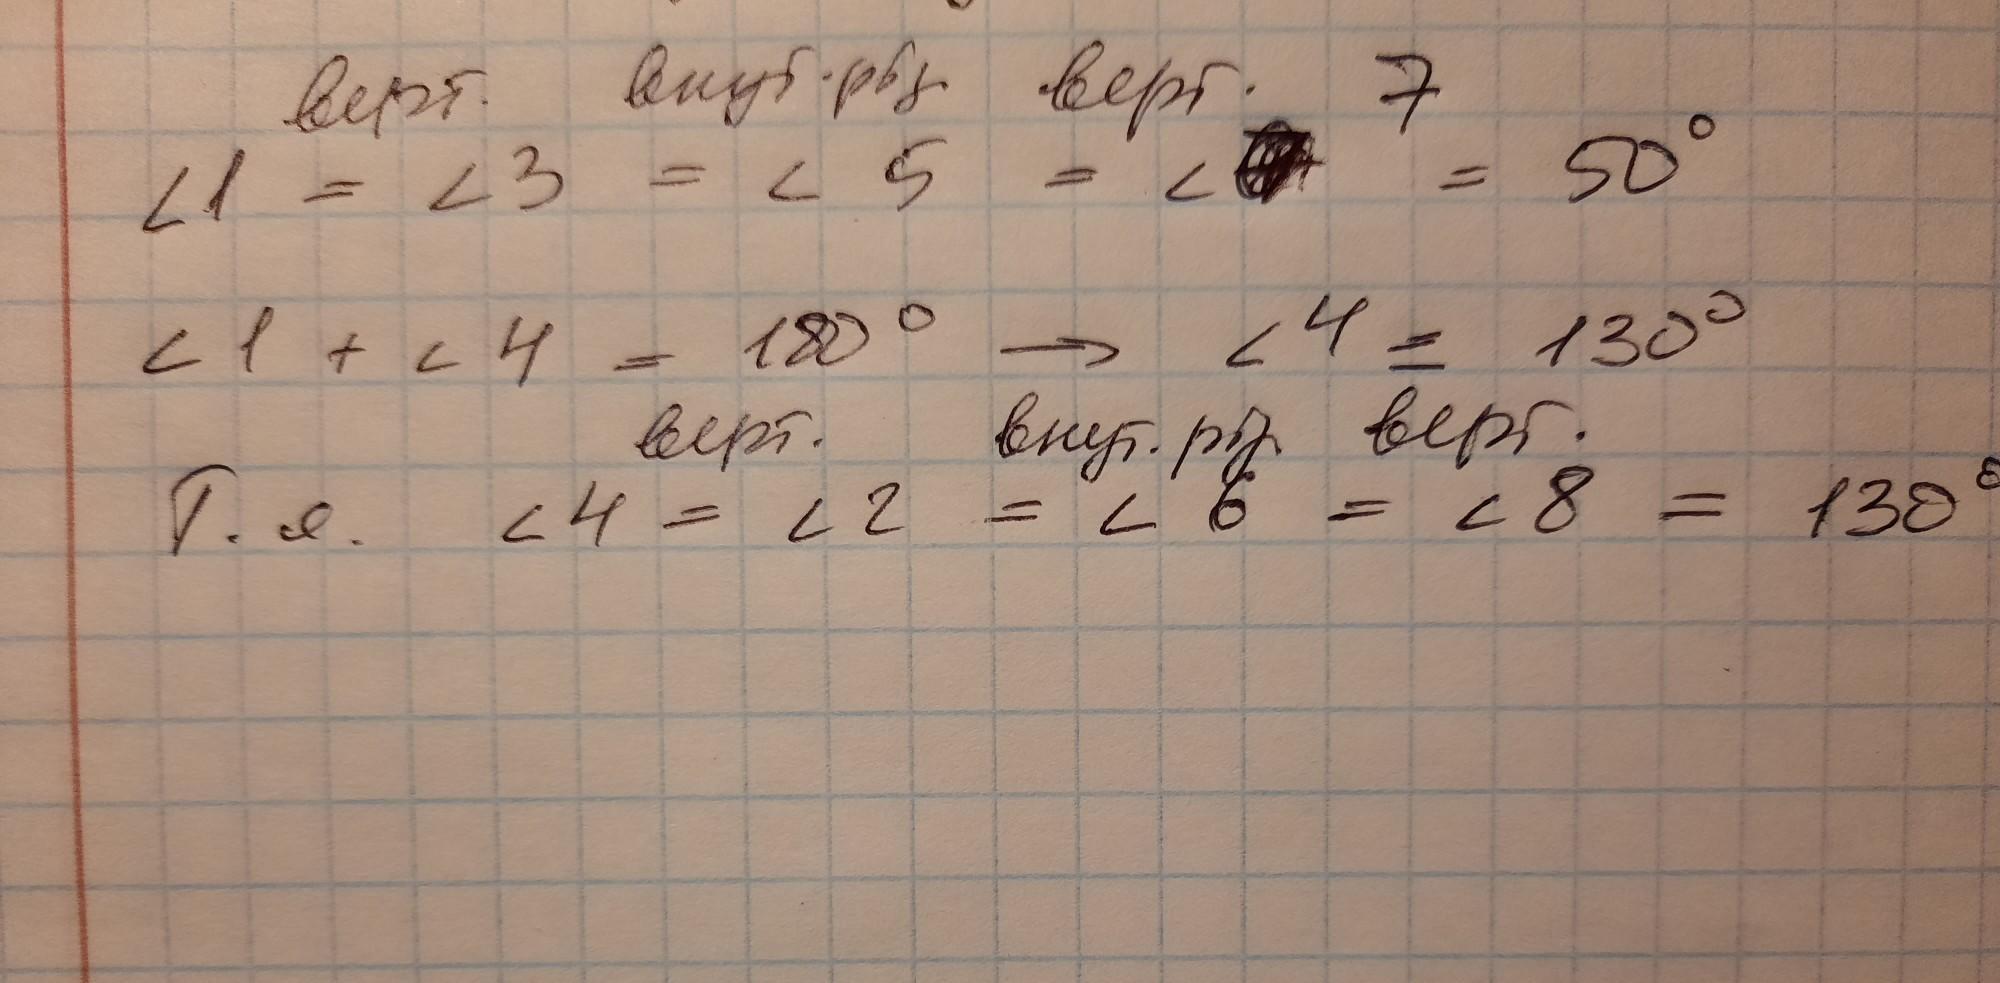 верт. внут. рбу. верт. 7
<1 = <3 = < 5 = < = 50°
<1 + <4 = 180° → <4 = 130°
верт. внут. рбу. верт.
Т. я. <4 = <2 = <6 = <8 = 130°